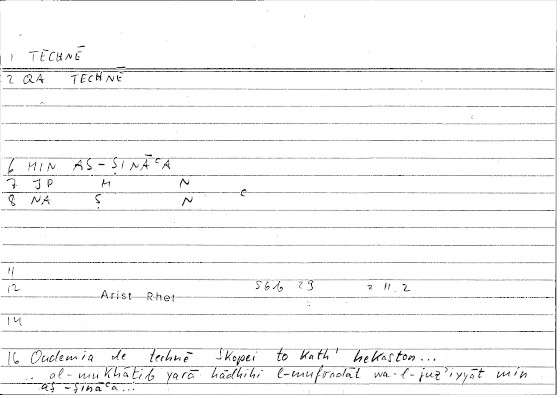 1 TECHNĒ
2 QA TECHNĒ
6 MIN AṢ-ṢINĀᶜA
7 JP M N
8 NA Ṣ N ᶜ
11
12 Arist Rhet 56b 29 = 11.2
14
16 Oudemia de technē skopei to kath' hekaston...
.. al-mukhātib yarā hādhihi l-mufradāt wa-l-juz'iyyāt min
aṣ-ṣināᶜa...